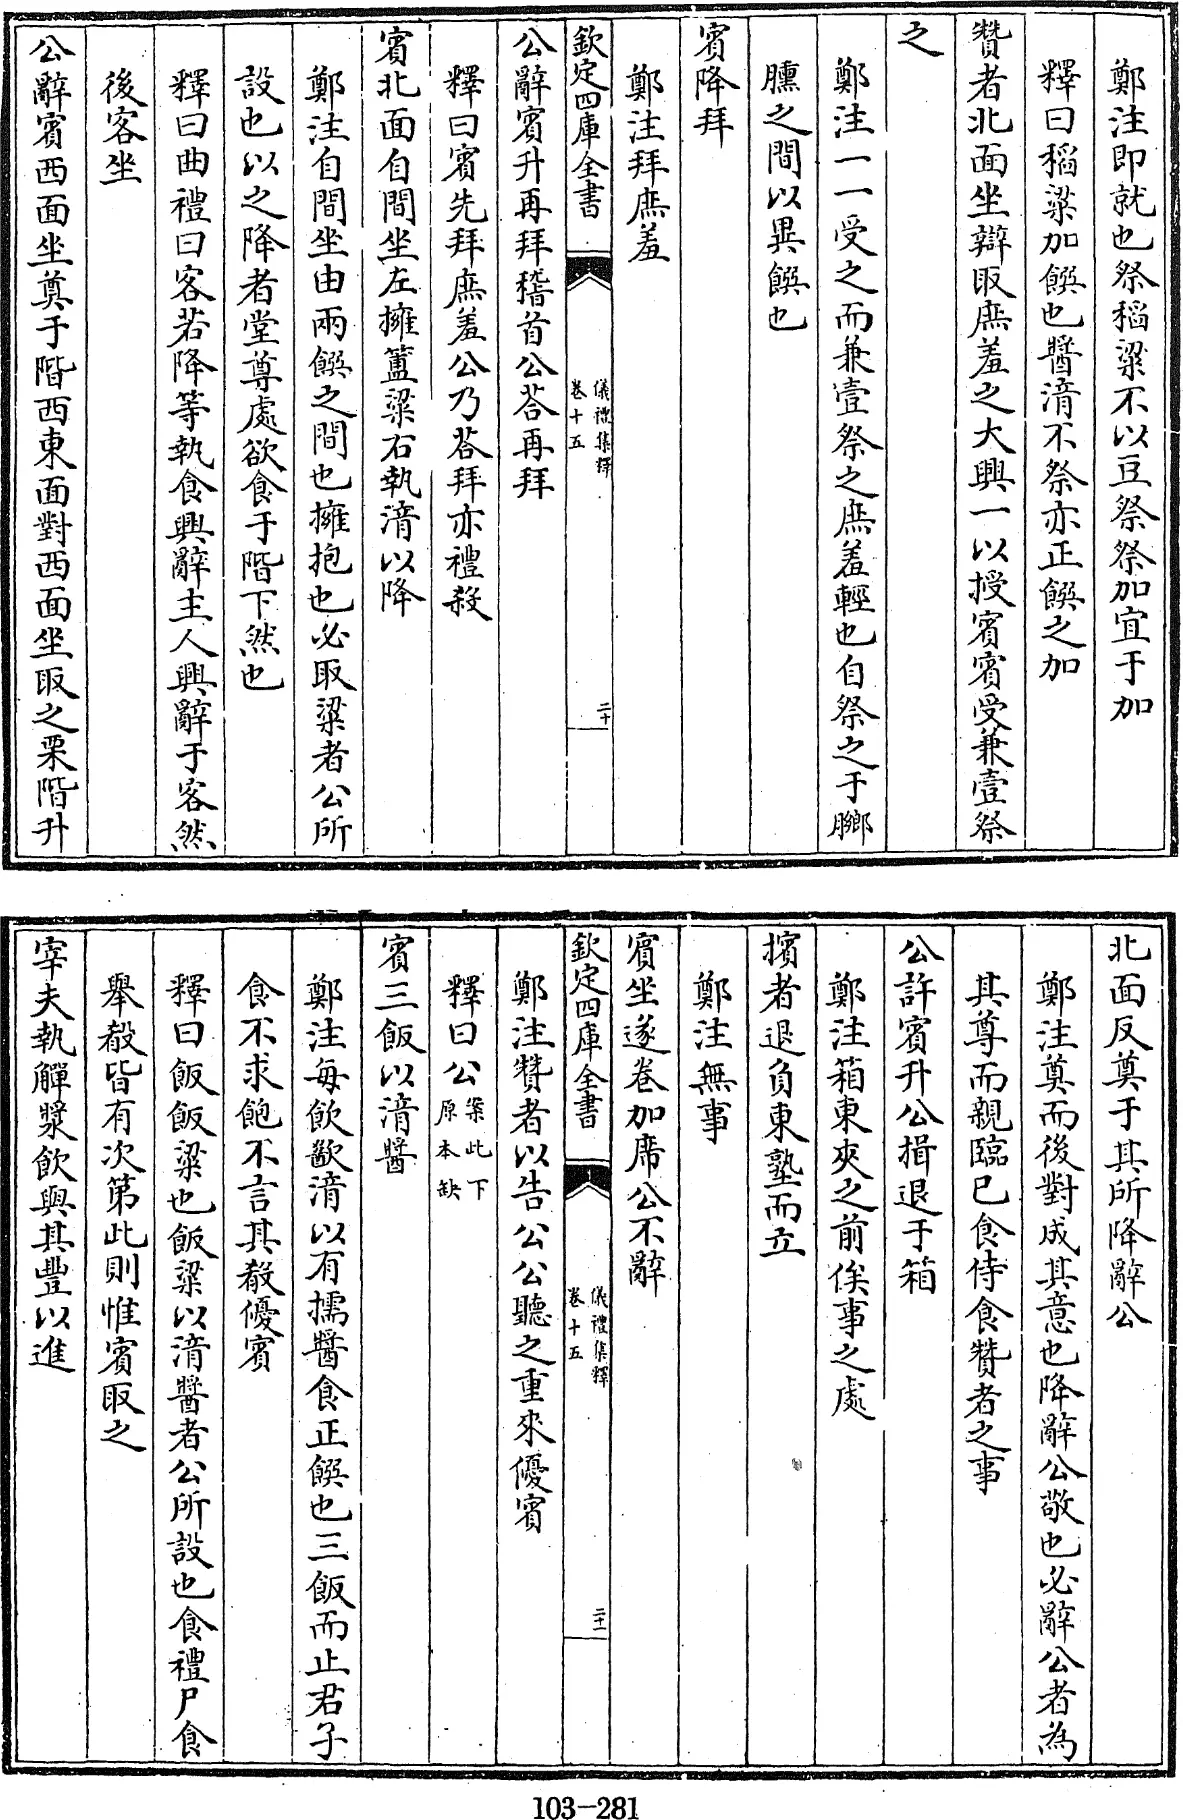 鄭注即就也祭稻粱不以豆祭祭加宜于加
釋曰稻粱加饌也醬湆不祭亦正饌之加
贊者北面坐辯取庶羞之大興一以授賓賓受兼壹祭
之
鄭注一一受之而兼壹祭之庶羞輕也自祭之于膷
臐之間以異饌也
賓降拜
鄭注拜庶羞
欽定四庫全書
儀禮集釋
卷十五
二十
公辭賓升再拜稽首公荅再拜
釋曰賓先拜庶羞公乃荅拜亦禮殺
賓北面自間坐左擁簠粱右執湆以降
鄭注自間坐由兩饌之間也擁抱也必取粱者公所
設也以之降者堂尊處欲食于階下然也
釋曰曲禮曰客若降等執食興辭主人興辭于客然
後客坐
公辭賓西面坐奠于階西東面對西面坐取之栗階升
北面反奠于其所降辭公
鄭注奠而後對成其意也降辭公敬也必辭公者為
其尊而親臨已食侍食贊者之事
公許賓升公揖退于箱
鄭注箱東夾之前俟事之處
擯者退負東塾而立
鄭注無事
賓坐遂卷加席公不辭
欽定四庫全書
儀禮集釋
卷十五
二十一
鄭注贊者以告公公聽之重來優賓
釋曰公案此下原本缺
賓三飯以湆醬
鄭注每飲歠湆以肴擩醬食正饌也三飯而止君子
食不求飽不言其殽優賓
釋曰飯飯粱也飯粱以湆醬者公所設也食禮尸食
舉殽皆有次第此則惟賓取之
宰夫執觶漿飲與其豐以進
103-281